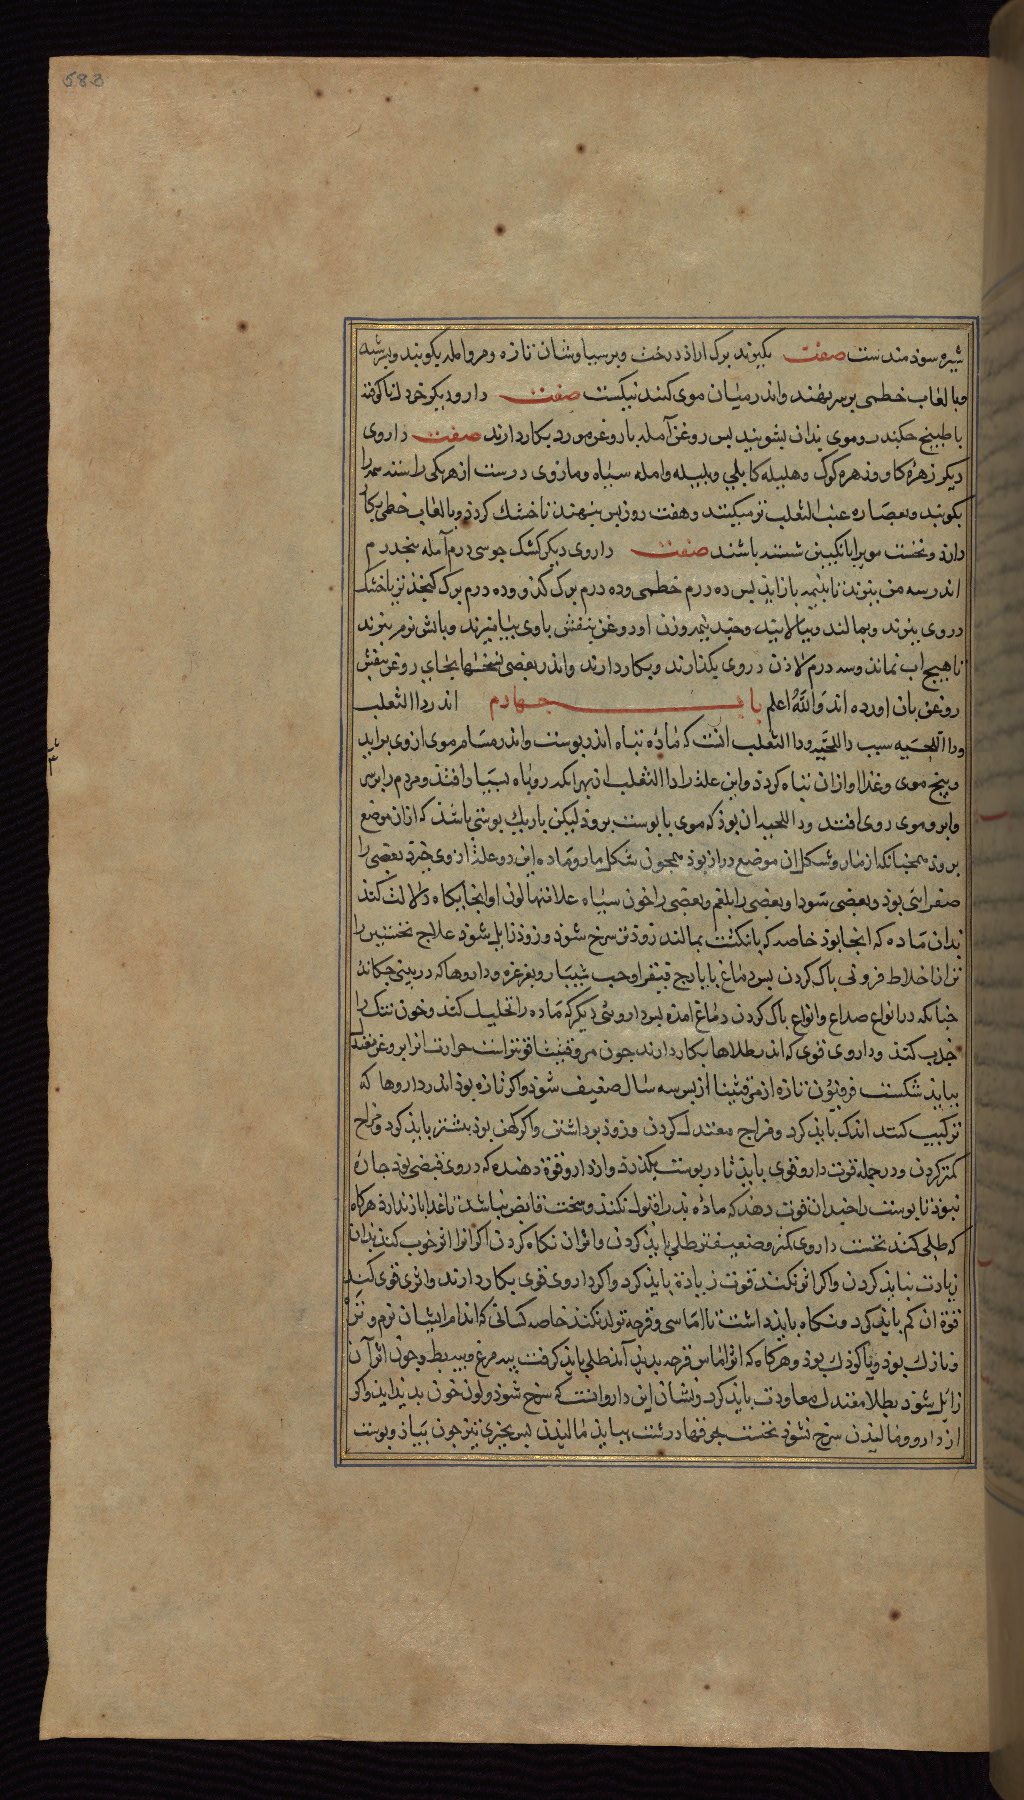 583
شیره سوذمندست صفت بکیرند برک ازاد درخت وبرسیاوشان تازه ومرو امله بکوبند وبرشه
وبا لعاب خطمی برسر نهند واندر میان موی کنند نیکست صفت دارو دیکر خردل ناکوفته
با طبیخ جکندر وموی بذان بشویند بس روغن آمله با روغن مورد بکار دارند صفت داروی
دیکر زهره کاو وزهره کرک وهلیله کابلی وبلیله وامله سیاه ومازوی درست از هریکی راستد
بکوبند وبعصاره عنب الثعلب تر میکنند وهفت روز بس بنهند تا خشک کردد وبا لعاب خطمی بکار
دارد ونخست موی را بانکبین شسته باشند صفت داروی دیکر کشک جو سی درم آمله بنجدرم
اندر سه من بنزند تا بنیمه باز آید بس ده درم خطمی وده درم برک کدو وده درم برک کنجد تر یا خشک
در وی بنزند وبمالند وببالایند وجند نیم وزن او روغن بنفش با وی بیامیزند وباتش نرم بنزند
تا هیچ اب نماند وسه درم لاذن در وی بکدارند وبکار دارند واندر بعضی نسختها بجای روغن بنفش
روغن بان اورده اند والله اعلم باب جهارم اندر داالثعلب
وداالحیه سبب داالحیه وداالثعلب انست که مادّه تباه اندر بوست واندر مسام موی ازوی براید
وبیخ موی وغذا او ازان تباه کردد واین علة را داالثعلب از بهر انکه روباه را بسیار افتد ومردم را برسر
وابرو وموی روی افتد وداالحیه ان بوذ که موی با بوست بروذ لیکن باریک بوستی باشد که ازان موضع
بروذ همجنانکه از مار وشکل ان موضع دراز بوذ همجون شکل مار وماده این دو علة ازوی خیزد بعضی را
صفرائی بوذ وبعضی سودا وبعضی را بلغم وبعضی را خون سیاه علامتها لون اوانجایکاه دلالت کند
بدان ماده که انجا بوذ خاصه که بانکشت بمالند زوذتر سرخ شوذ وزوذ زایل شوذ علاج نخستین را
تن از اخلاط فزونی باک کردن بس دماغ بایارج فیقرا وحب شبیار وبغرغره وداروها که در بینی جکانند
جنانکه در انواع صداع وانواع باک کردن دماغ امذه بس داروئی دیکر که ماده را تحلیل کند وخون نیک را
جذب کند وداروی قوی که اندر طلاها بکار دارند جون فرفیون قوتر است حرارت انرا بروغن معتدل
ببایذ شکست فرفیون تازه از قوتها از بس سه سال ضعیف شوذ واکر تازه بوذ اندر داروها که
ترکیب کنند اندک بایذ کرد ومزاج معتدل کردن وزوذ برداشتن واکر کهن بوذ بیشتر بایذ کرد ومزاج
کمتر کردن ودر جمله قوت دارو قوی بایذ تا در بوست بکذرد واز دارو قوة دهنده که در وی قبضی بوذ جاره
نبوذ تا بوست را جندان قوت دهد که مادّه بذ را قبول نکند وسخت قابض نباشد تا غذا باز ندارد هرکاه
که طلی کنند نخست داروی کمتر وضعیفتر طلی بایذ کردن واثر ان نکاه کردن اکر انرا اثر خوب کند بران
زیادت نبایذ کردن واکر اثر نکند قوت زیادة بایذ کرد واکر داروی قوی بکار دارند واثری قوی کند
قوة ان کم بایذ کرد ونکاه بایذ داشت تا اماسی وقرحه تولد نکند خاصه کسانی که اندام ایشان نرم وتر
ونازک بوذ ویا کوذک بوذ وهرکاه که اثر اماس قرحه بدید آید طلی بایذ کرفت بیه مرغ وبیه بط وجون اثر آن
زایل شوذ بطلا معتدل معاودت بایذ کرد ونشان این دارو انست که سرخ شوذ ولون خون بدید اید واکر
از دارو ومالیدن سرخ نشوذ نخست بخرقهاء درشت ببایذ مالیدن بس بجیزی تیز جون بیاز وبوست